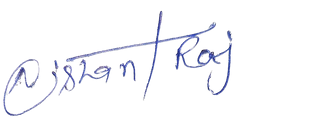 Nishant Raj